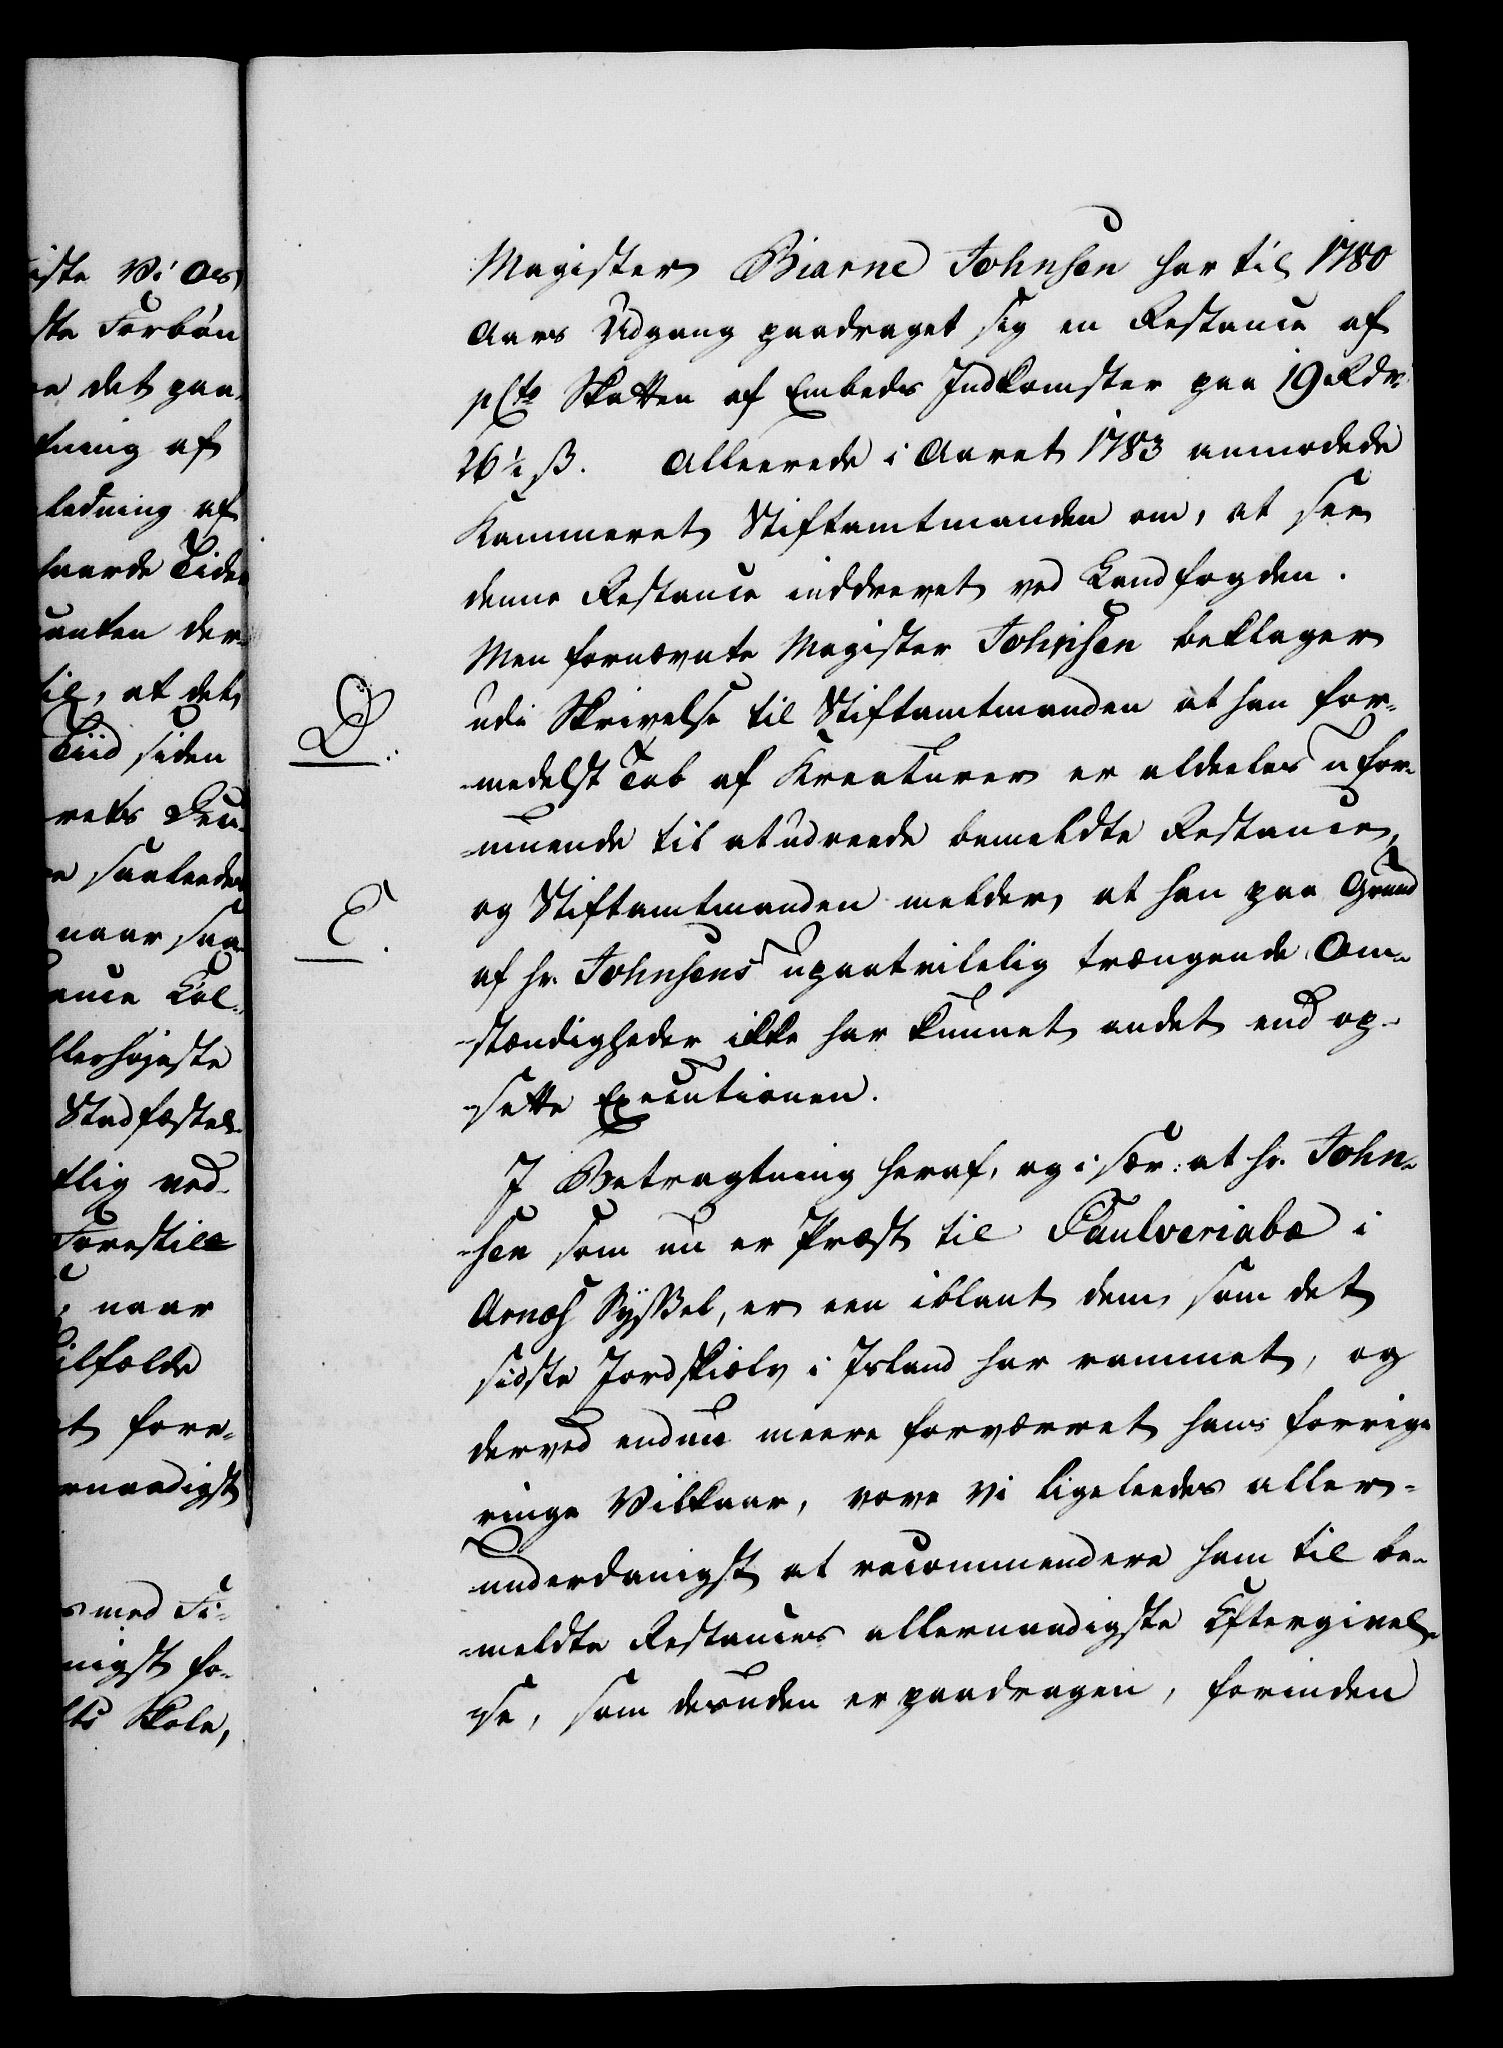 iste Vi os
ste Forbøn
e det paa
kning af
ledning af
haarde Tider
anten der
til, at det
Tiid siden
rets Den
e saaleedes
naar saa
ance Col-
llerhøjeste
Stadfæstel-
tlig ved-
Forestille
naar
tilfalde
t fore-
rnaadigst
s med Fi-
nigst fo-
lts Skole,
Magister Biarne Johnsen har til 1780
Aars Udgang paadraget sig en Restance af
pCto Skatten af Embeds Indkomster paa 19 Rdr
26½ ß. Allerede i Aaret 1783 anmodede
Kammeret Stiftamtmanden om, at see
denne Restance inddrevet ved Landfogden.
Men fornævnte Magister Johnsen beklager
D.
udi Skrivelse til Stiftamtmanden at han for-
medelst Tab af Kreaturer er aldeeles ufor-
muende til at udreede bemeldte Restance,
E.
og Stiftamtmanden melder, at han paa Grund
af hr. Johnsens upaatvilelig trængende Om-
stændigheder ikke har kunnet andet end op-
sætte Executionen.
I Betragtning heraf, og i sær: at hr. John-
sen som nu er Præst til Gaulveriabæ i
Arnæs Syssel, er een iblant dem som det
sidste Jordskiælv i Island har rammet, og
derved endnu meere forværret hans forrige
ringe Vilkaar, vove Vi ligeleedes aller-
underdanigst at recommendere ham til be-
meldte Restances allernaadigste Eftergivel-
se, som desuden er paadragen, forinden